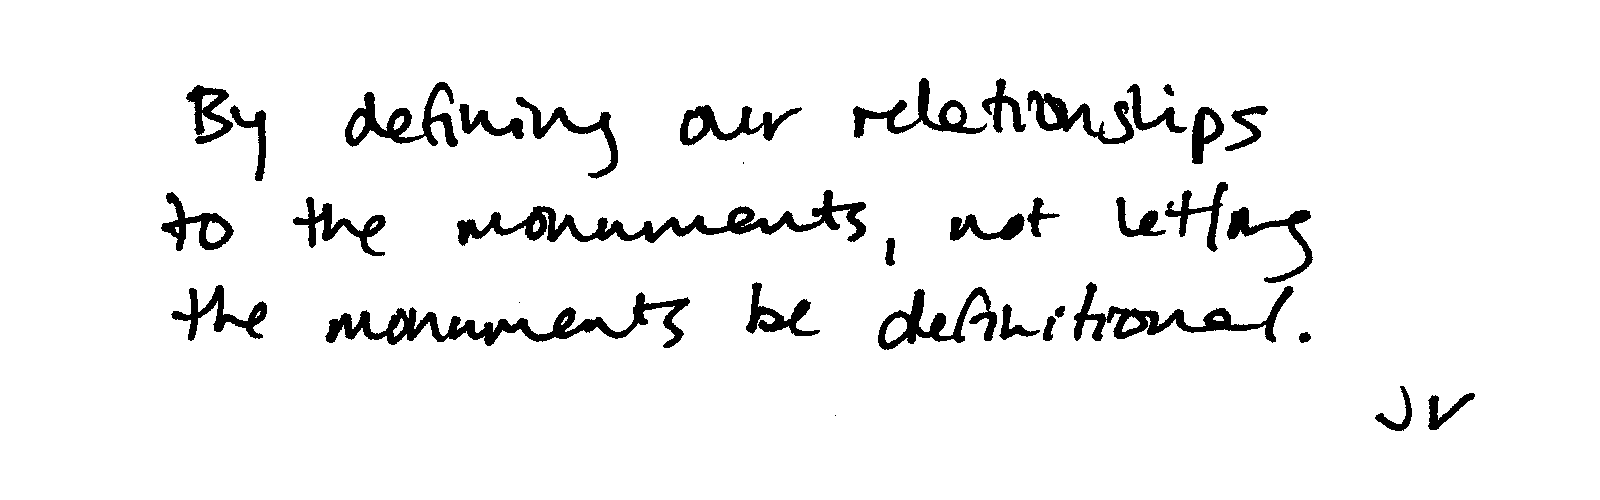 By defining our relationships
to the monuments, not letting
the monuments be definitional.
JV